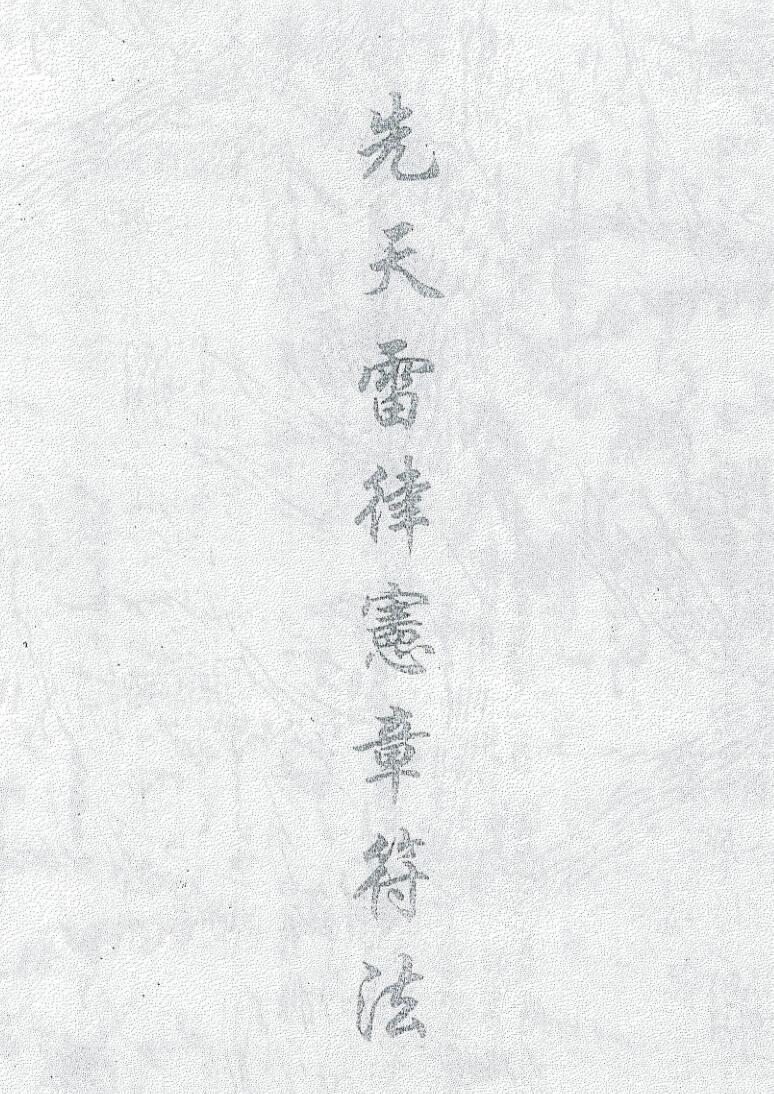 先天雷律憲章符法